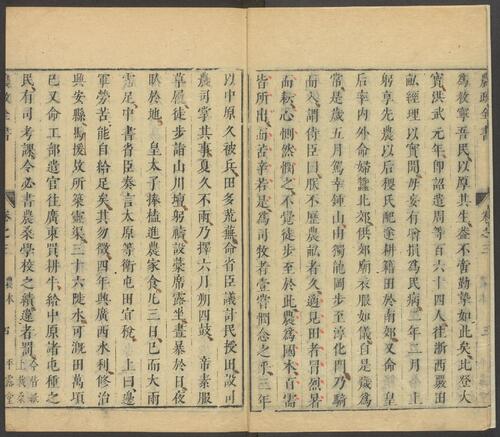 農政全書 卷之三
為牧寧善民以厚其生蓋不啻勤摯如此矣比登大
寶洪武元年即詔遣周等百六十四人往浙西覈田
畝經理以實聞毋妄有增損為民病二年二月上
躬享先農以后稷氏配遂耕籍田於南郊又命皇
后率內外命婦蠶北郊供郊廟衣服如儀自是歲為
常是歲五月駕幸鍾山由獨龍岡步至淳化門乃騎
而入謂侍臣曰朕不歷農畝者久適見田者冒烈暑
而耘心惻然憫之不覺徒步至於此農為國本百需
皆所出而苦辛若是為司牧者亶嘗憫念之乎三年
以中原久被兵田多荒蕪命省臣議計民授田設司
農司掌其事夏久不雨乃擇六月朔四鼓 帝素服
草屨徒步詣山川壇躬禱設藁席露坐晝暴於日夜
臥於地 皇太子捧榼進農家食凡三日已而大雨
霑足中書省臣奏言太原等衛屯田宜稅 上曰邊
軍勞苦能自給足矣其勿徵四年興廣西水利修治
興安縣馬援故所築靈渠三十六陡水可溉田萬頃
已又命工部遣官往廣東買耕牛給中原諸屯種之
民有司考課令必書農桑學校之績違者罰
農政全書 卷之三 農本 四 平露堂